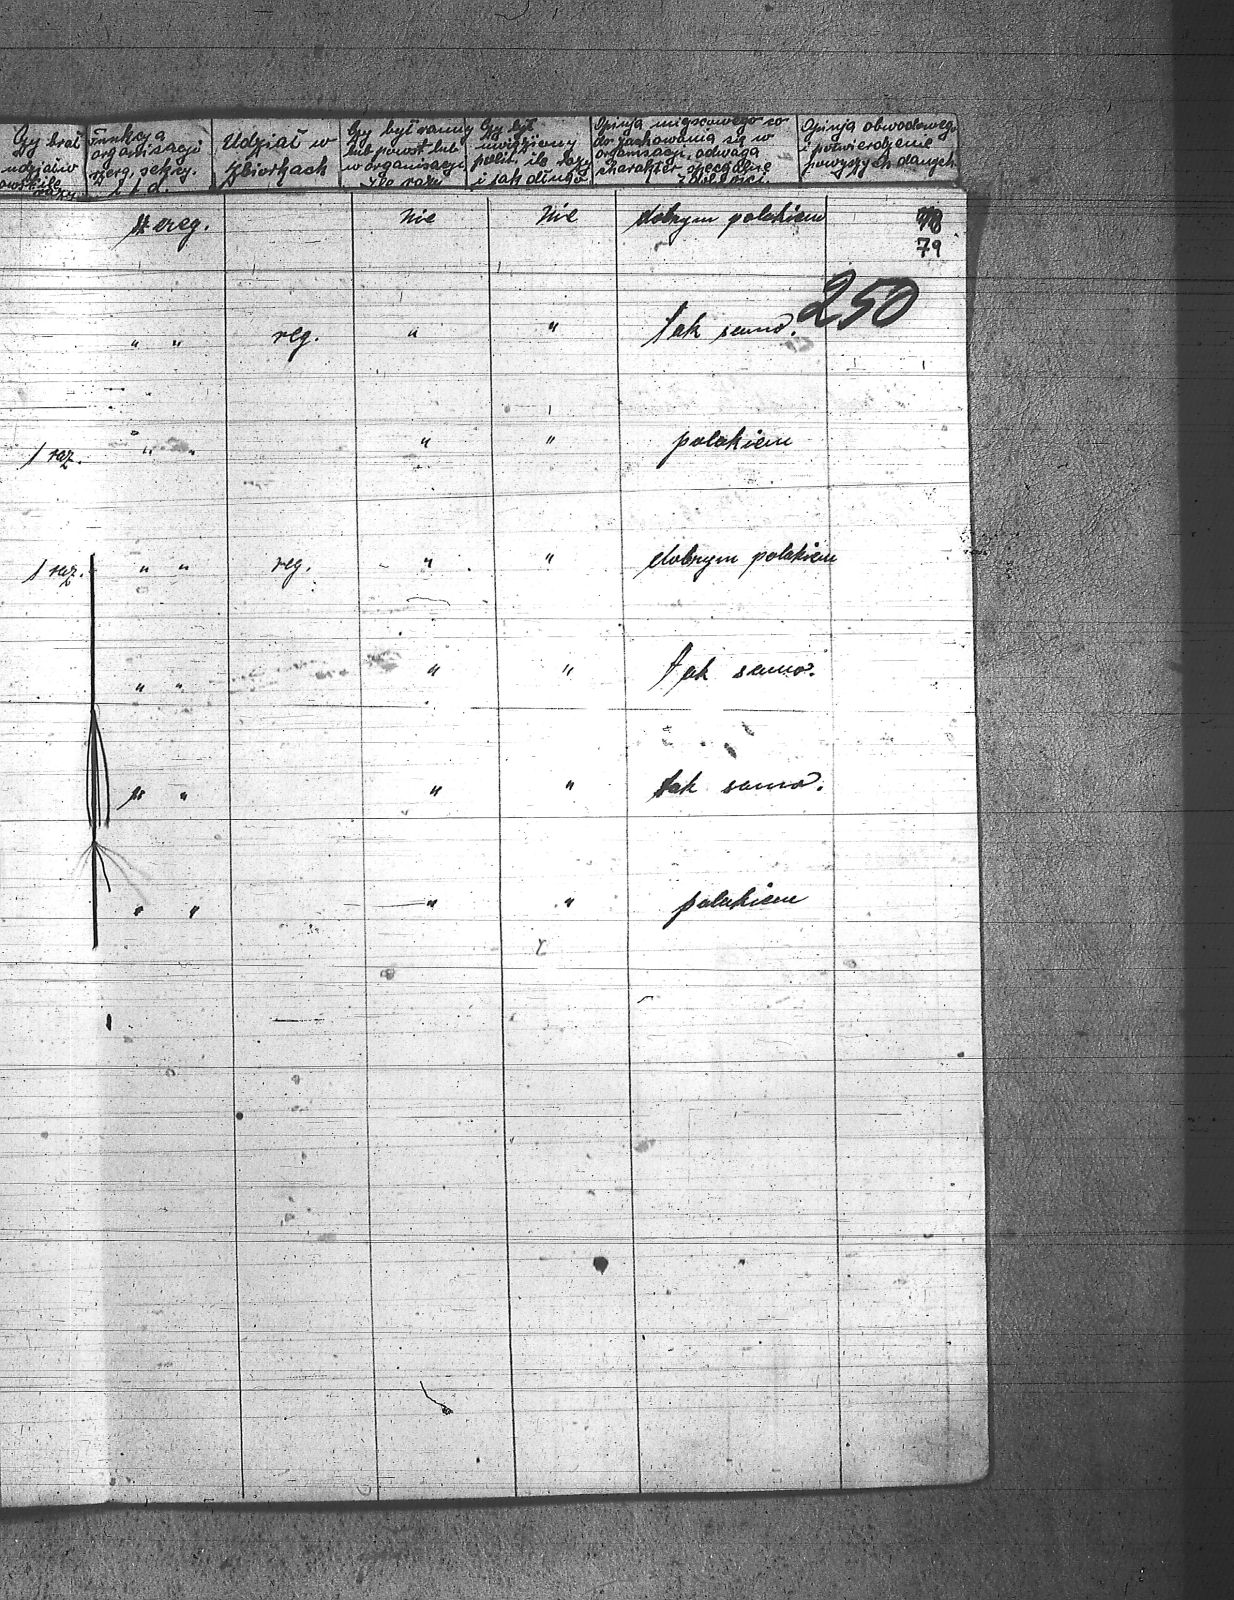 Czy brał
udział w
Funkcja
organisacji
szereg, sekcyj.
i t. d.
Udział w
Zbiorkach
Czy był ranny
lub poważ lub
w organisacji
ile razy
Czy był
uwięziony
polit. ile razy
i jak długo
Opinja miejscowego co
do zachowania się w
organisacji, odwaga
charakter specjalne
zdolności.
Opinja obwodowego
i potwierdzenie
powyższych danych
szereg. Nie Nie dobrym polakiem
79
250
" " reg. " " tak samo.
1 raz. " " " " polakiem
1 raz. " " reg. " " dobrym polakiem
" " " " tak samo.
" " " " tak samo.
" " " " polakiem